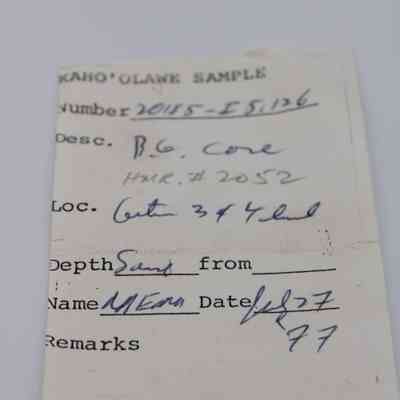 KAHO'OLAWE SAMPLE
Number 20185-I 5,126
Desc. B.G. Core
HMR. # 2052
Loc. 3 & 4
Depth from
Name Date 27
77
Remarks